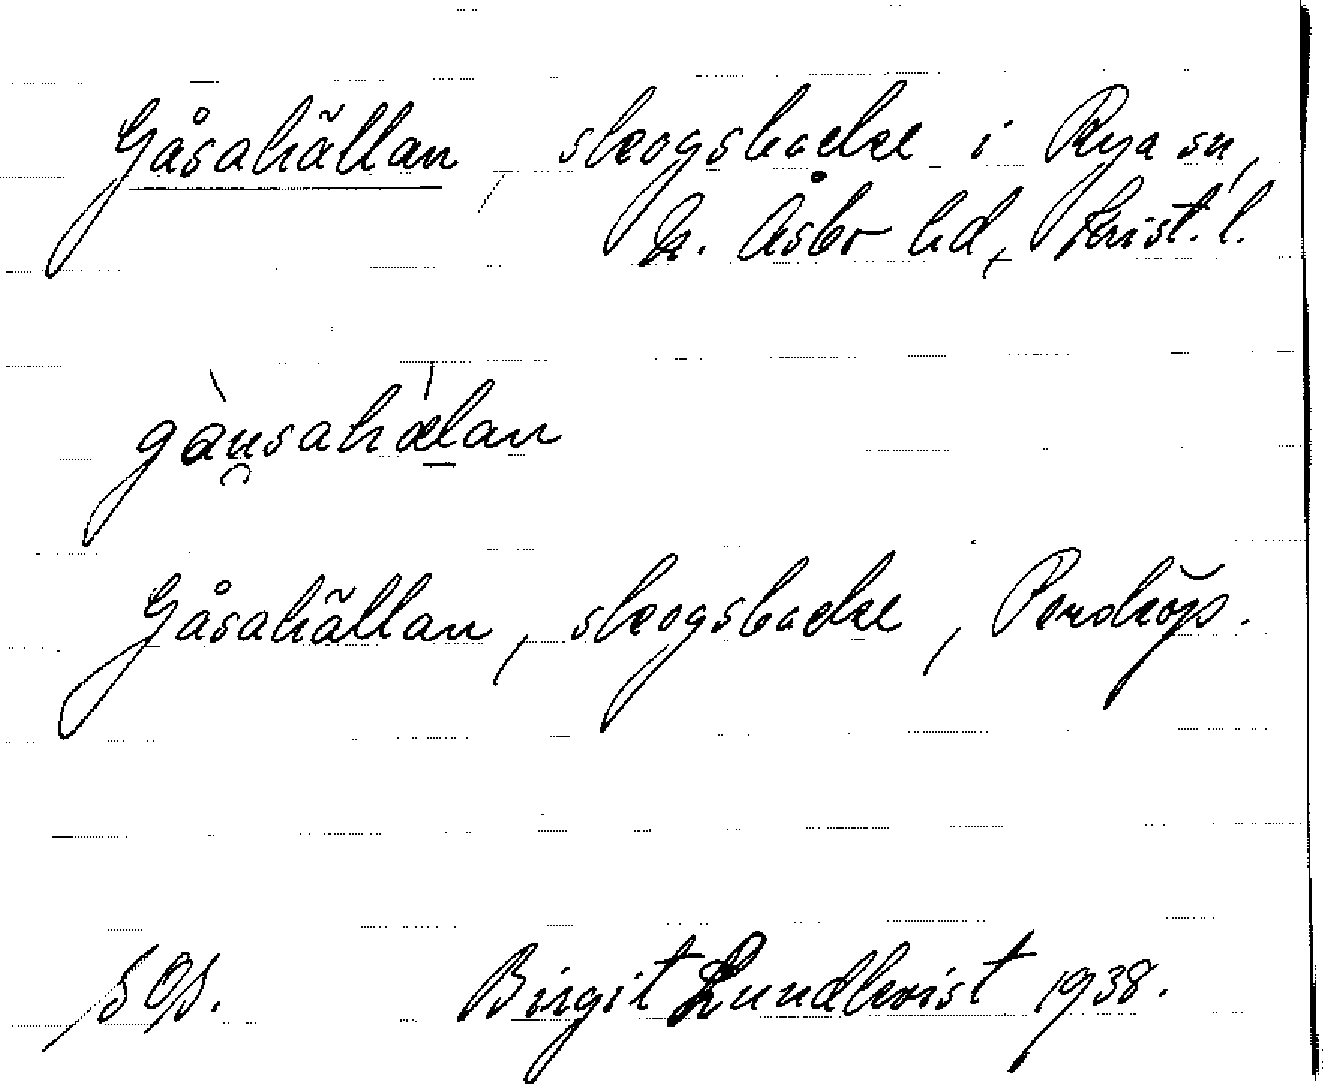 Gåsahällan, skogsbacke i Rya sn,
N. Åsbo hd, Krist. l.
gàu̯sahæ̀lan
Gåsahällan, skogsbacke, Perdköp.
Birgit Lundkvist 1938.